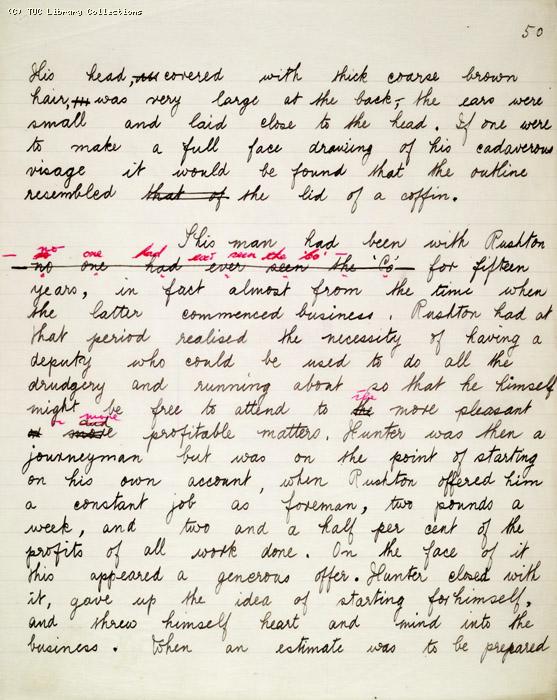 (C) TUC Library Collections
50
His head, covered with thick coarse brown
hair, was very large at the back; the ears were
small and laid close to the head. If one were
to make a full face drawing of his cadaverous
visage it would be found that the outline
resembled that of the lid of a coffin.
This man had been with Rushton
— no one had ever seen the 'Co' —
no one had ever seen the 'Co' for fifteen
years, in fact almost from the time when
the latter commenced business. Rushton had at
that period realised the necessity of having a
deputy who could be used to do all the
drudgery and running about so that he himself
the
might be free to attend to the more pleasant
and more
or more profitable matters. Hunter was then a
journeyman but was on the point of starting
on his own account, when Rushton offered him
a constant job as foreman, two pounds a
week, and two and a half per cent of the
profits of all work done. On the face of it
this appeared a generous offer. Hunter closed with
it, gave up the idea of starting for himself,
and threw himself heart and mind into the
business. When an estimate was to be prepared